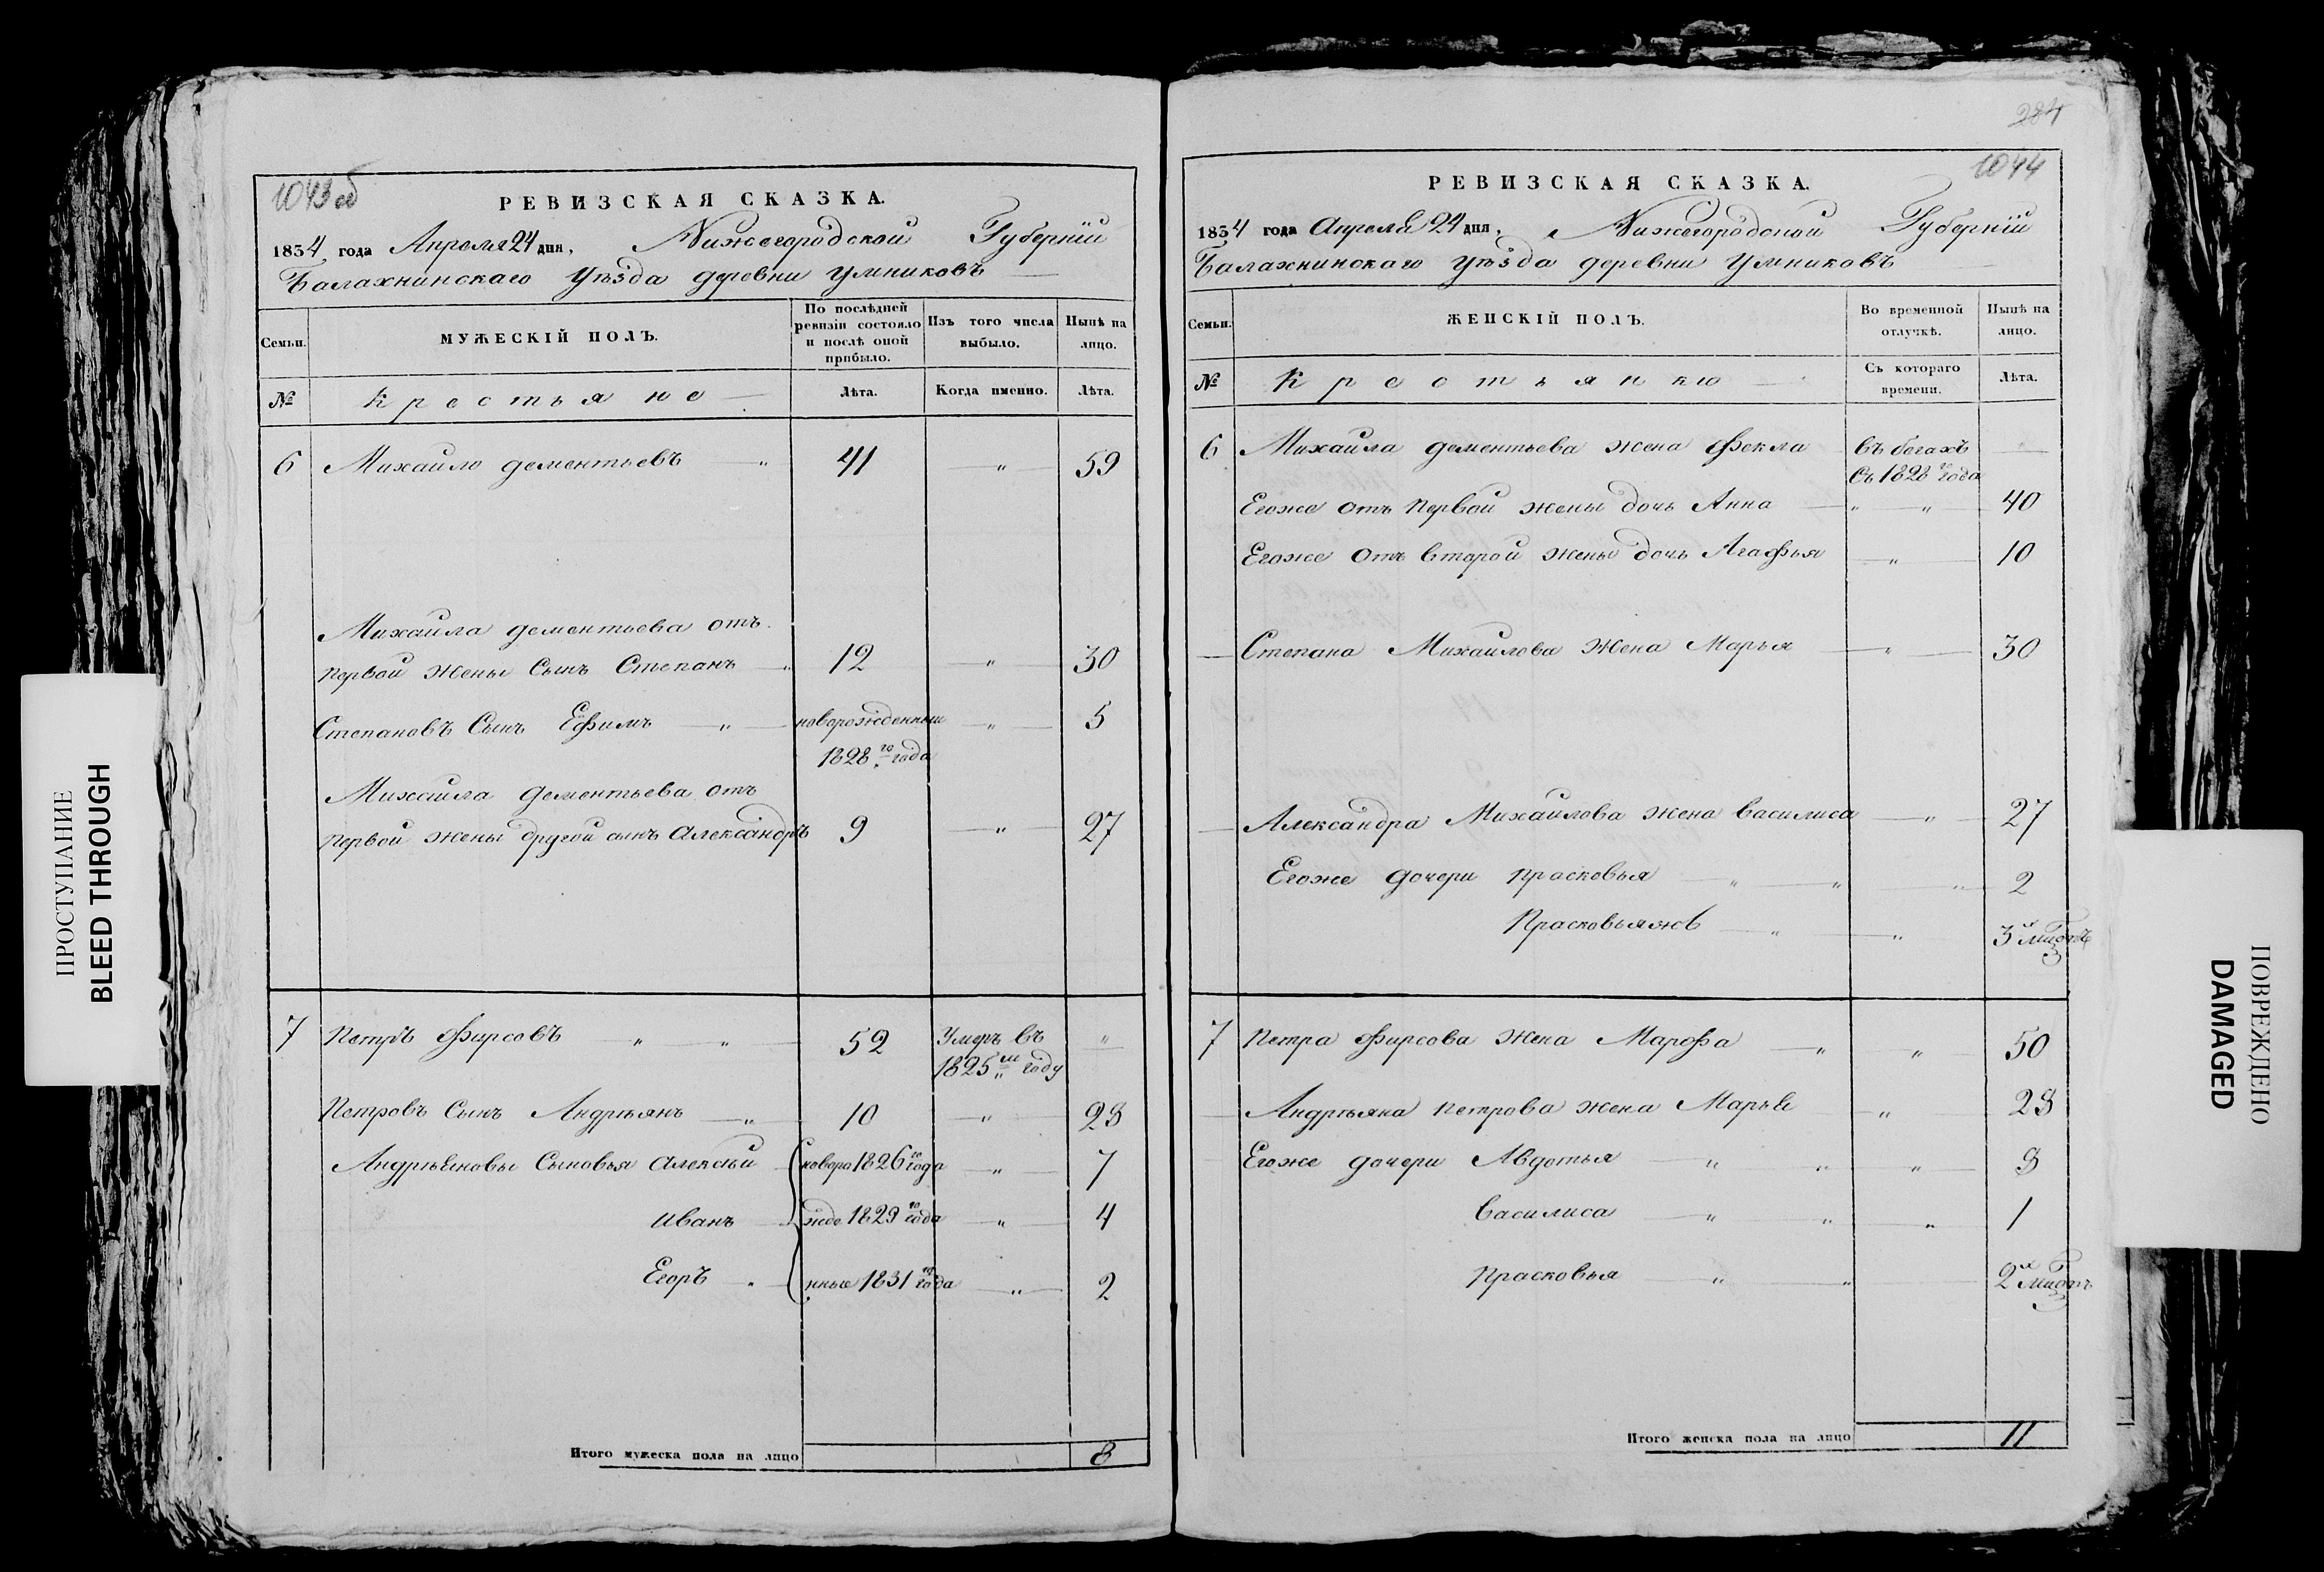 1043 об
РЕВИЗСКАЯ СКАЗКА.
1834 года Апреля 24 дня, Нижегородской Губерніи
Балахнинскаго Уѣзда деревни Умниковъ
Семьи.
МУЖЕСКІЙ ПОЛЪ.
По послѣдней ревизіи состояло и послѣ оной прибыло.
Изъ того числа выбыло.
Нынѣ на лицо.
№
Крестьяне
Лѣта.
Когда именно.
Лѣта.
6 Михайло дементьевъ " 41 " 59
Михайла дементьева отъ
первой жены Сынъ Степанъ " 12 " 30
Степановъ Сынъ Ефимъ " новорожденный " 5
1828го года
Михайла дементьева отъ
первой жены другой сынъ Александръ 9 " 27
7 Петръ Фирсовъ " " 52 Умеръ въ "
1825м году
Петровъ Сынъ Андреянъ " 10 " 28
Сыновья Алексѣй новоро 1826го года " 7
Иванъ жде 1829го года " 4
Егоръ " нные 1831го года " 2
Итого мужеска пола на лицо 8
284
1044
РЕВИЗСКАЯ СКАЗКА.
1834 года Апреля 24 дня, Нижегородской Губерніи
Балахнинскаго Уѣзда деревни Умниковъ
Семьи.
ЖЕНСКІЙ ПОЛЪ.
Во временной отлучкѣ.
Нынѣ на лицо.
№
Крестьянки
Съ котораго времени.
Лѣта.
6 Михайла дементьева жена Фекла въ бегахъ
Съ 1828го года
Егоже отъ первой жены дочь Анна " " 40
Егоже отъ второй жены дочь Агафья " 10
Степана Михайлова жена Марья " 30
Александра Михайлова жена василиса " 27
Егоже дочери прасковья " " " 2
Прасковьяжъ " " 3х
7 Петра Фирсова жена Марофа " " 50
Андреяна петрова жена Марья " 28
Егоже дочери Авдотья " " " 8
василиса " " " 1
прасковья " " 2х
Итого женска пола на лицо 11
ПРОСТУПАНИЕ
BLEED THROUGH
ПОВРЕЖДЕНО
DAMAGED